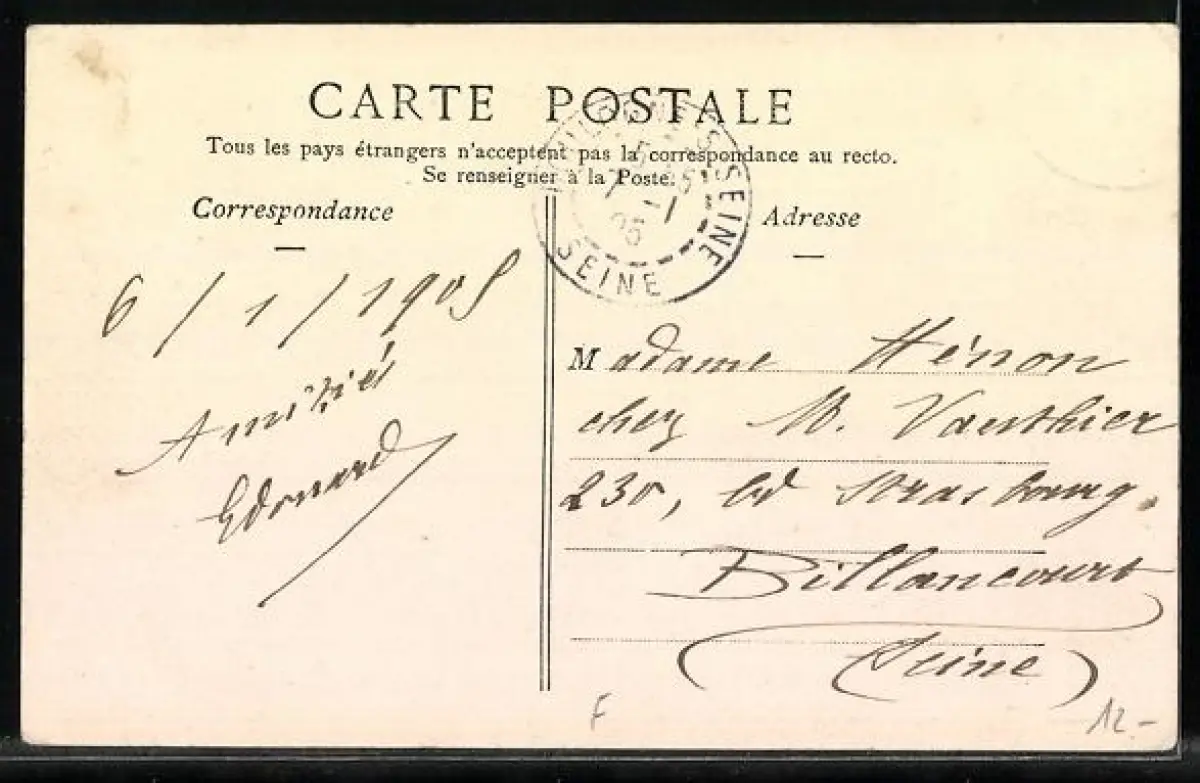 CARTE POSTALE
Tous les pays étrangers n'acceptent pas la correspondance au recto.
Se renseigner à la Poste.
SEINE
SEINE
Correspondance
Adresse
6/1/1905
Amitiés
Edouard
Madame Hénon
chez M. Vauthier
230, bd Strasbourg.
Billancourt
(Seine)
F
12-